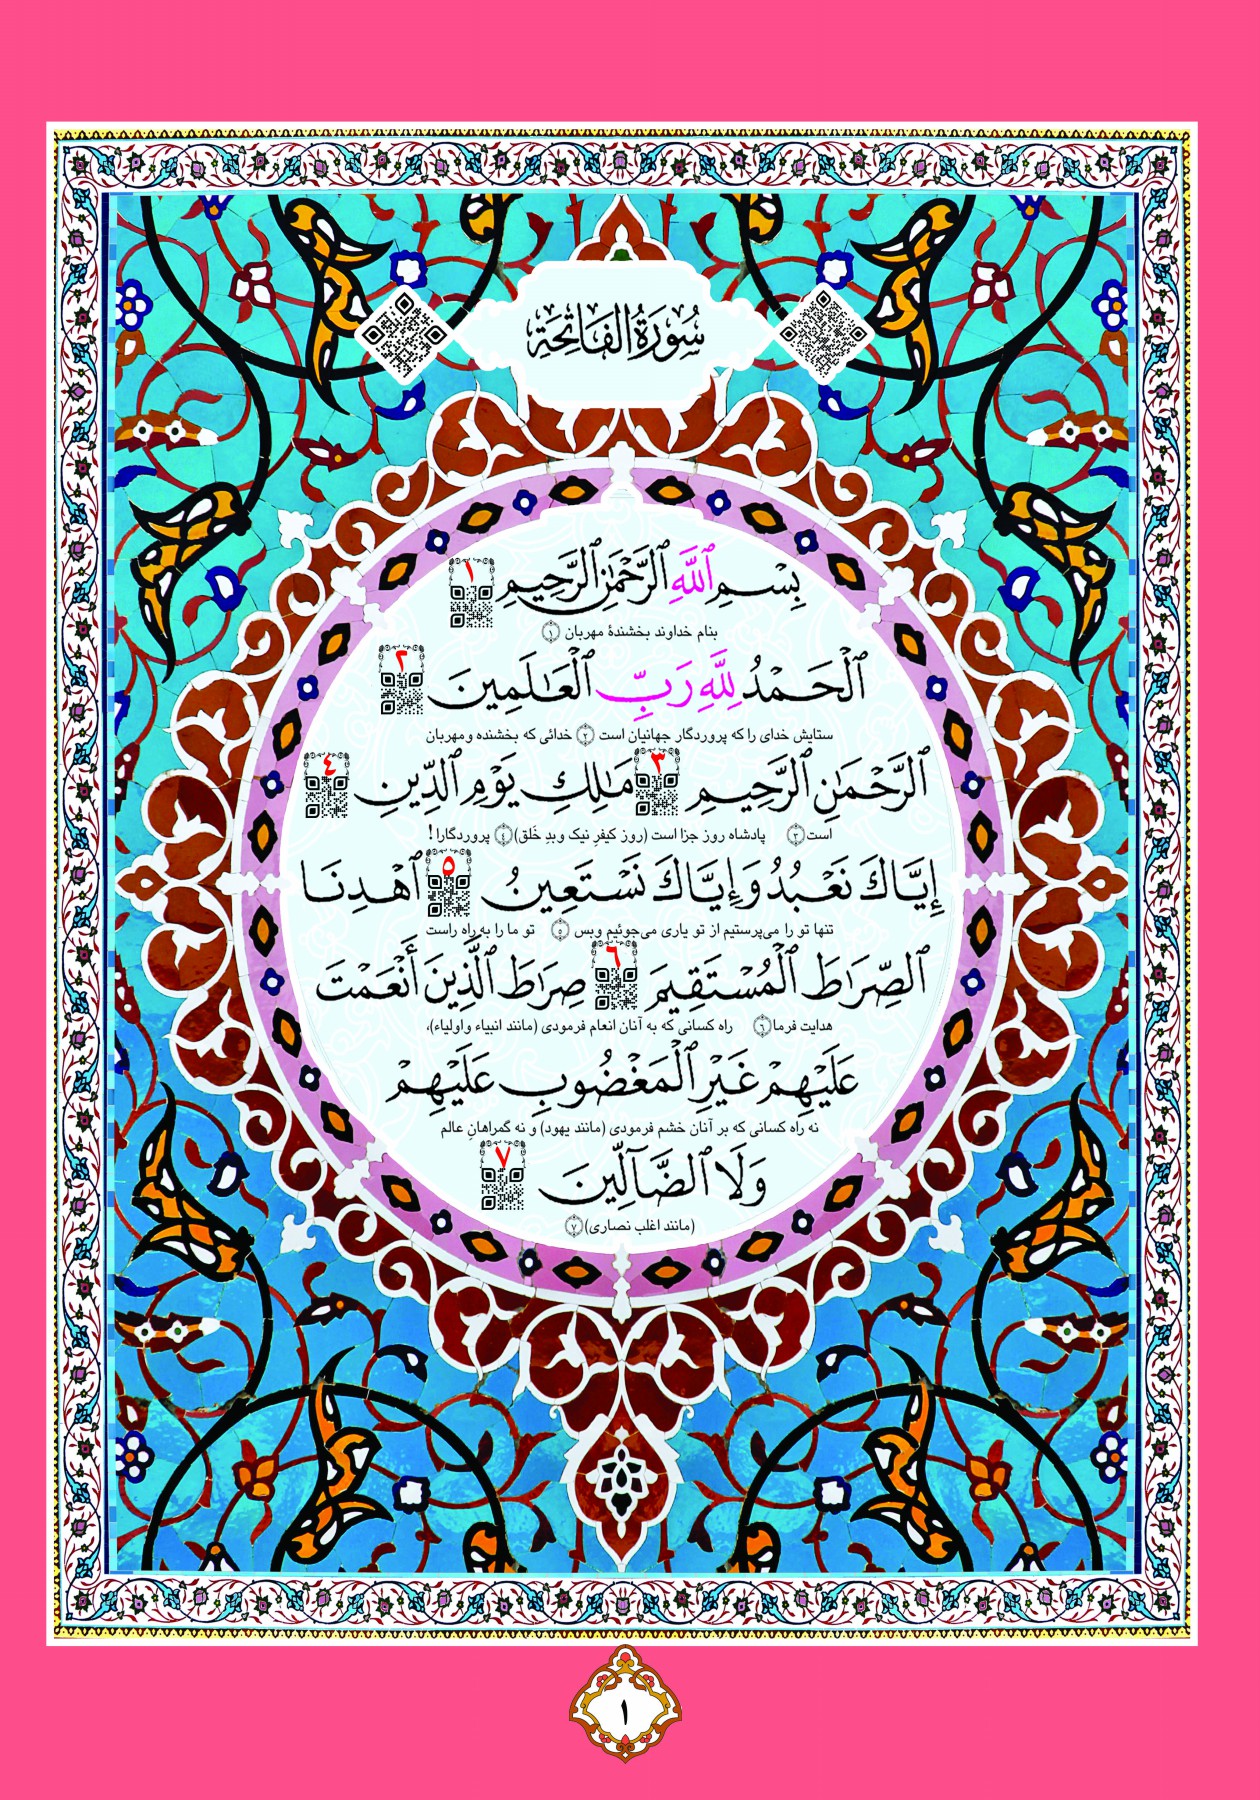 سُورَةُ الفَاتِحَة
بِسْمِ ٱللَّهِ ٱلرَّحْمَٰنِ ٱلرَّحِيمِ ١
بنام خداوند بخشندهٔ مهربان ١
ٱلْحَمْدُ لِلَّهِ رَبِّ ٱلْعَٰلَمِينَ ٢
ستایش خدای را که پروردگار جهانیان است ٢ خدائی که بخشنده ومهربان
ٱلرَّحْمَٰنِ ٱلرَّحِيمِ ٣ مَٰلِكِ يَوْمِ ٱلدِّينِ ٤
است ٣ پادشاه روز جزا است (روز کیفرِ نیک وبدِ خَلق) ٤ پروردگارا!
إِيَّاكَ نَعْبُدُ وَإِيَّاكَ نَسْتَعِينُ ٥ ٱهْدِنَا
تنها تو را می‌پرستیم از تو یاری می‌جوئیم وبس ٥ تو ما را به‌راه راست
ٱلصِّرَٰطَ ٱلْمُسْتَقِيمَ ٦ صِرَٰطَ ٱلَّذِينَ أَنْعَمْتَ
هدایت فرما ٦ راه کسانی که به آنان انعام فرمودی (مانند انبیاء واولیاء)،
عَلَيْهِمْ غَيْرِ ٱلْمَغْضُوبِ عَلَيْهِمْ
نه راه کسانی که بر آنان خشم فرمودی (مانند یهود) و نه گمراهانِ عالم
وَلَا ٱلضَّآلِّينَ ٧
(مانند اغلب نصاری) ٧
١